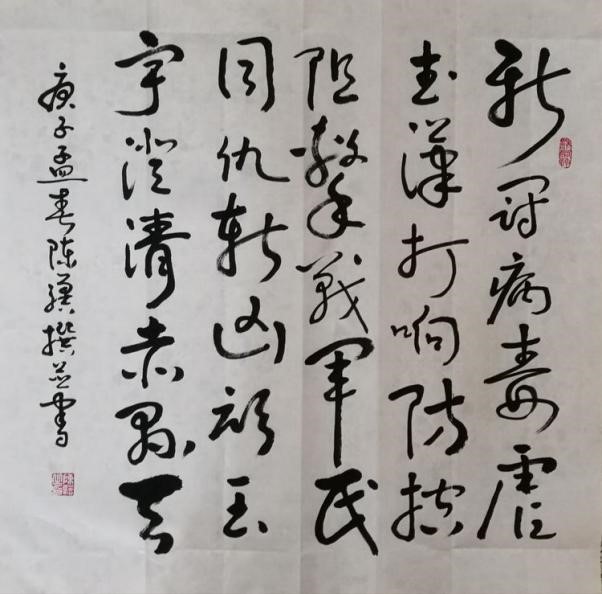 新冠病毒虐
武漢打响防控
阻擊战军民
同仇斩凶顽玉
宇澄清赤县天
庚子孟春陈撰并书